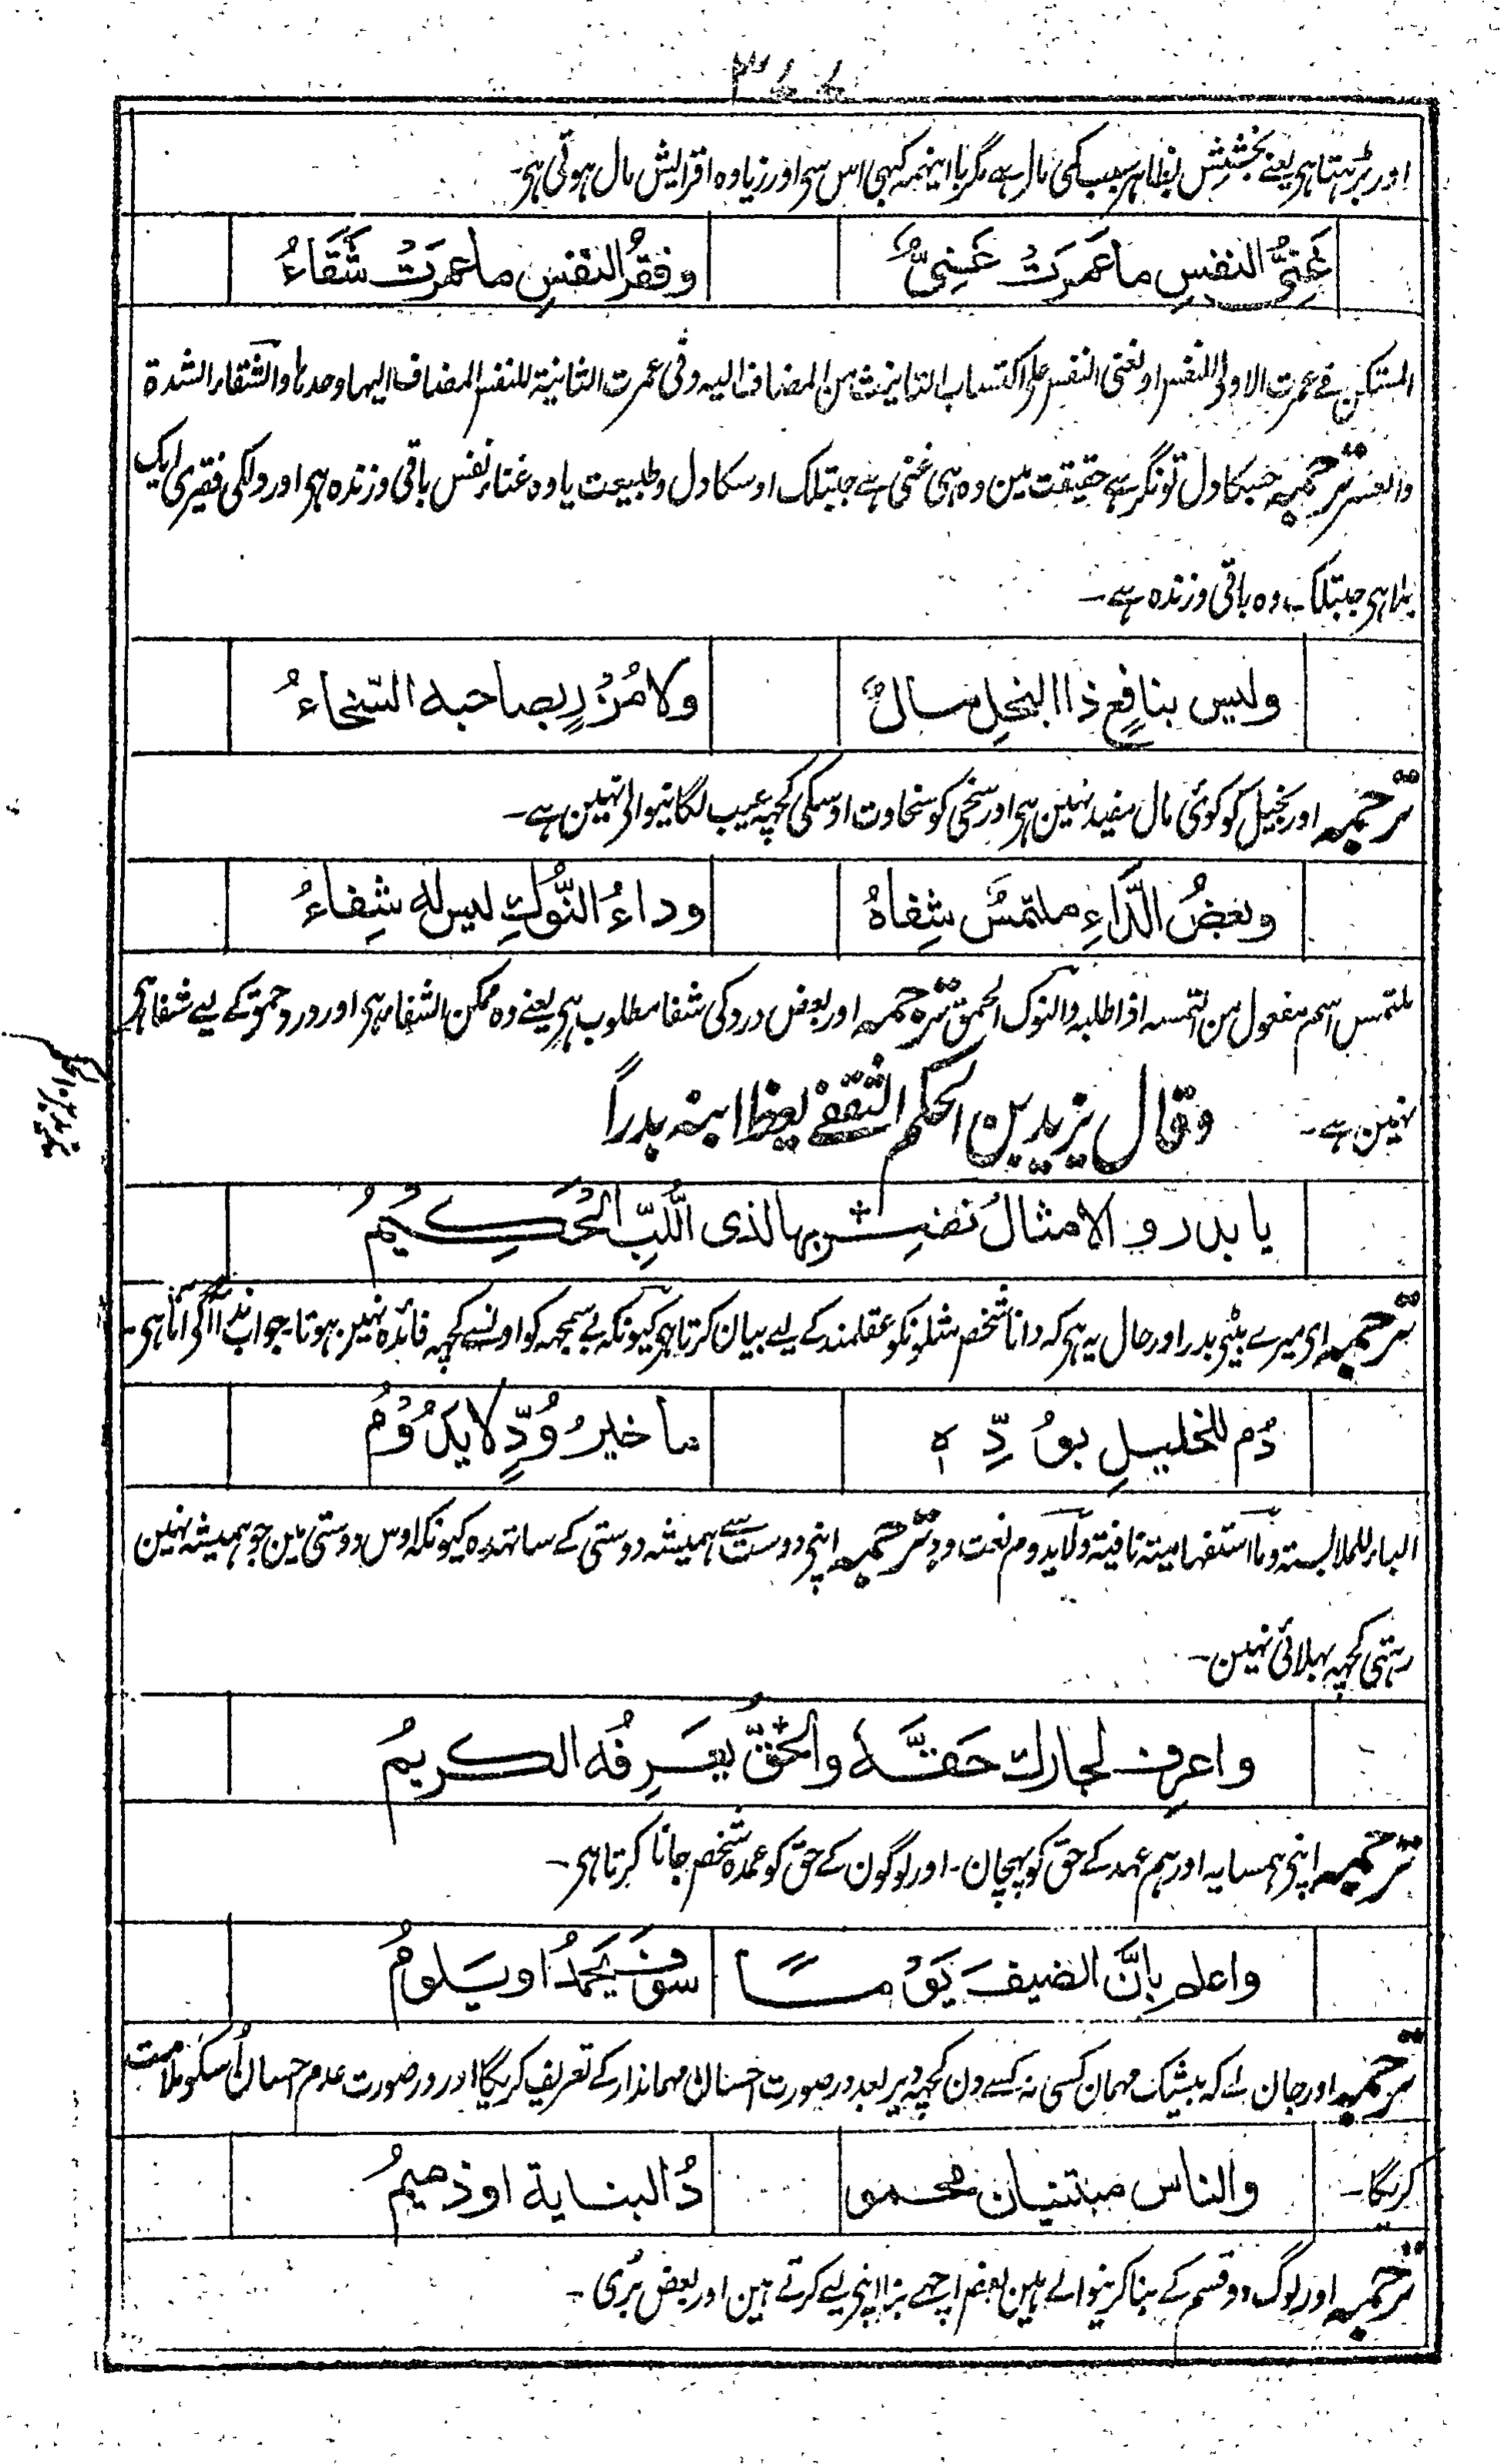 ۳۷۷
اور بڑہتا ہی یعنے بخشش بظاہر سبب کمی مال ہے مگر با اینہمہ کبھی اس سی اور زیادہ افزایش مال ہوتی ہی۔
غَنِيُّ النفسِ ما عَمَرَتْ غَنِيٌّ وفقرُ النفسِ ما عمرَتْ شَقَاءُ
المستکن فے عمرت الاولی للنفس او لغنی النفس علی اکتساب التانیث من المضاف الیہ وفی عمرت الثانیۃ للنفس المضاف الیہا وحدہا والشقاء الشدۃ
والعسر ترجمہ جسکا دل تونگر ہے حقیقت مین وہ ہی غنی ہے جبتلک اوسکا دل و طبیعت یا وہ غناء نفس باقی و زندہ ہی اور دلکی فقیری ایک
بلا ہی جبتلک وہ باقی و زندہ ہے۔
وليس بنافِعٍ ذا البخلِ مالٌ ولا مُزْرٍ بصاحبه السّخاءُ
ترجمہ اور بخیل کو کوئی مال مفید نہین ہی اور سخی کو سخاوت اوسکی کچھہ عیب لگانیوالی نہین ہے۔
وبعضُ الدَّاءِ ملتمَسٌ شِفاهُ وداءُ النُّوكِ ليس له شِفاءُ
ملتمس اسم مفعول من التمسہ اذا طلبہ والنوک الحمق ترجمہ اور بعض درد کی شفا مطلوب ہی یعنے وہ ممکن الشفاء ہی اور درد حمق کے لیے شفا ہی
نہین ہے۔ وقال یزید بن الحکم الثقفے یعظ ابنہ بدراً
يا بدر و الامثالُ يضرِبها لذى اللُّبِّ الحَكِيمُ
ترجمہ ای میرے بیٹی بدر اور حال یہ ہی کہ دانا شخص مثلونکو عقلمند کے لیے بیان کرتا ہی کیونکہ بے سمجھہ کو اونسے کچھہ فائدہ نہین ہوتا۔ جواب ندا آگی آتا ہی۔
دُم للخليلِ بوُدِّہ ما خيرُ وُدٍّ لا يَدُوْمُ
الباء للملابستہ وما استفہامیتہ نافیتہ ولا یدوم نعت ود ترجمہ اپنی دوست سے ہمیشہ دوستی کے ساتھہ رہ کیونکہ اوس دوستی مین جو ہمیشہ نہین
رہتی کچھہ بھلائی نہین۔
واعرِف لجارك حَقَّهُ والحَقُّ يَعرِفُه الكريمُ
ترجمہ اپنی ہمسایہ اور ہم عہد کے حق کو پہچان۔ اور لوگون کے حق کو عمدہ شخص جانا کرتا ہی۔
واعلم بِانَّ الضيفَ يَوْمًا سوف يَحمَدُ او يَلومُ
ترجمہ اور جان لے کہ بیشک مہمان کسی نہ کسی دن کچھہ دیر بعد در صورت احسان مہماندار کے تعریف کریگا اور در صورت عدم احسان اُسکو ملامت
کریگا۔ والناس مبتنيان محمو دُ البناية او ذميمُ
ترجمہ اور لوگ دو قسم کے بنا کرنیوالے ہین بعض اچھے بنا اپنی لیے کرتے ہین اور بعض بُری۔